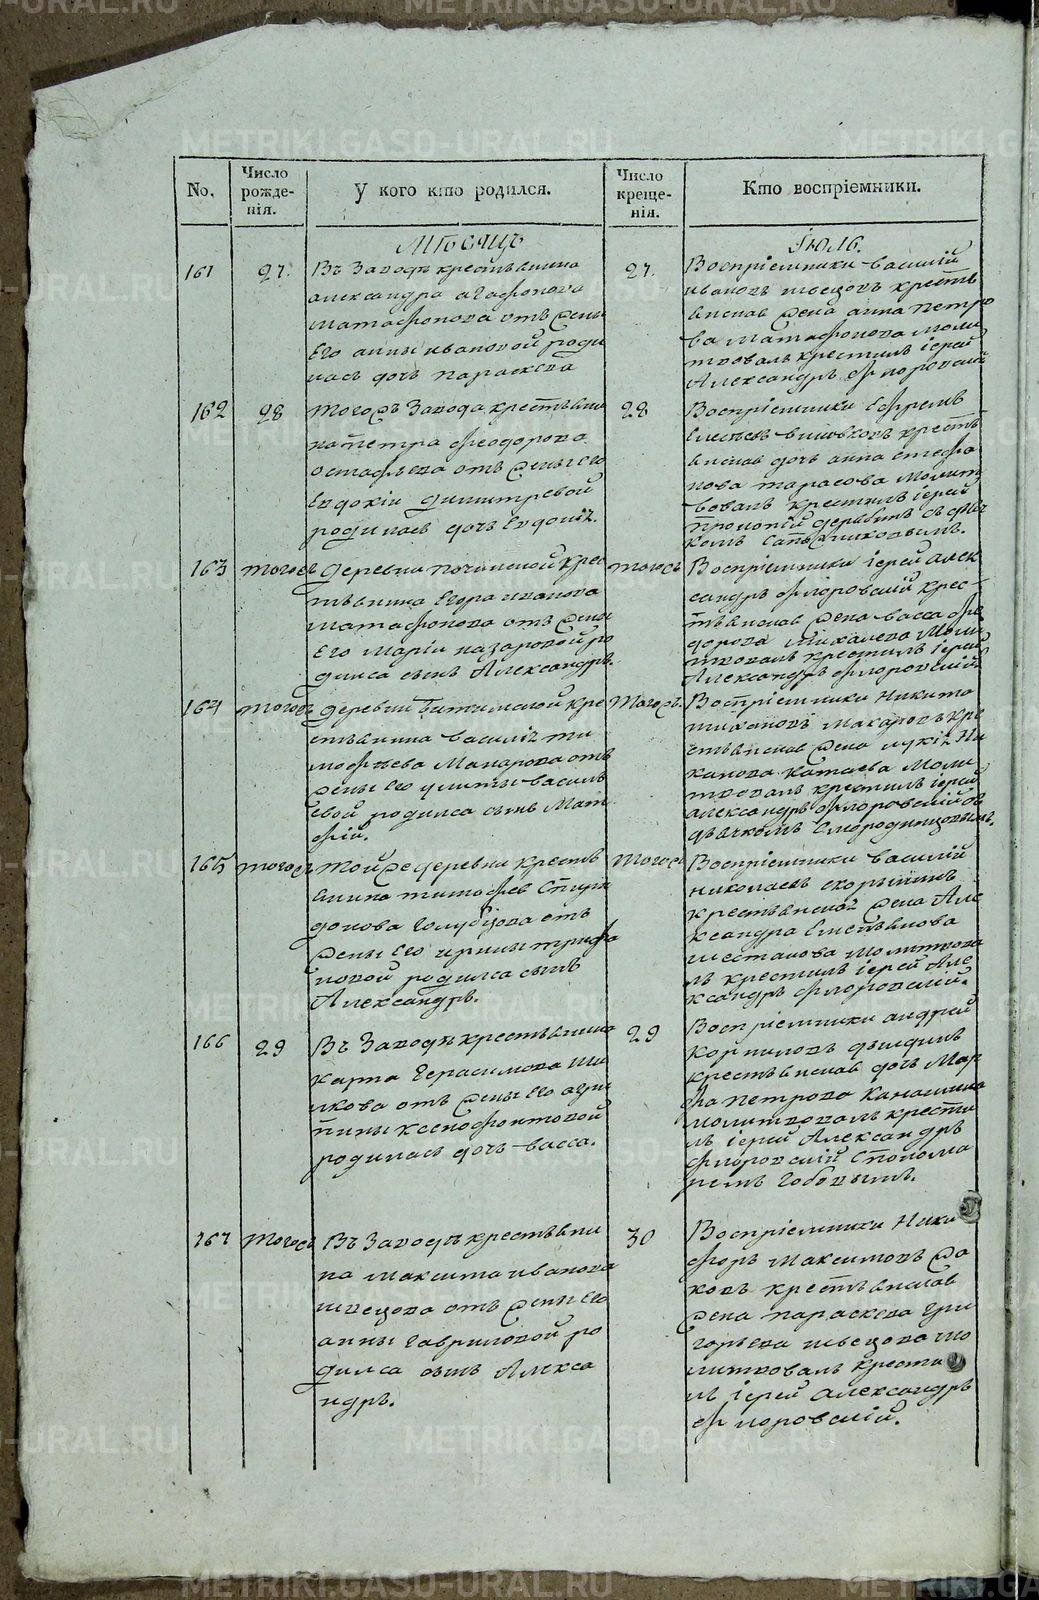 No.
Число рожде-нія.
У кого кто родился.
Число креще-нія.
Кто воспріемники.
Мѣсяцъ
Іюль.
161
27.
Въ Заводѣ крестьянина
александра агафонова
матафонова отъ жены
Его анны ивановой роди
лась дочь параскева
27.
Воспріемники василій
ивановъ швецовъ крестья
нская жена анна петро
ва матафонова моли
твовалъ крестилъ іерей
Александръ флоровскій
162
28
Тогожъ Завода крестьяни
на петра феодорова
остафьева отъ жены его
Евдокіи димитревой
родилась дочь Евдокія.
28
Воспріемники Ефремъ
крестья
нская дочь анна стефа
нова тарасова молит
вовалъ крестилъ іерей
съ дьяч
комъ
163
тогожъ
деревни починской крес
тьянина Егора иванова
матафонова отъ жены
Его маріи назаровой ро
дился сынъ Александръ.
тогожъ
Воспріемники іерей алек
сандръ флоровскій крес-
тьянская жена васса фе
дорова михалева моли
твовалъ крестилъ іерей
Александръ флоровскій
164
тогожъ
деревни битимской кре
стьянина василія ти
мофѣева Макарова отъ
жены его улиты василь
евой родился сынъ Мат
фій.
Тогожъ
Воспріемники Никита
тихановъ макаровъ кре
стьянская жена лукія
канова катаева моли
твовалъ крестилъ іерей
александръ флоровскій съ
дьячкомъ Смородинцовымъ.
165
тогожъ
тойже деревни кресть
янина тимофея Спири
донова Голубцова отъ
жены Его ирины трифа
новой родился сынъ
Александръ.
Тогожъ
Воспріемники василій
николаевъ скорынинъ
крестьянская жена Але
ксандра Емельянова
шестакова молитвова
лъ крестилъ іерей Але
ксандръ флоровскій.
166
29
Въ Заводѣ крестьянина
карпа Герасимова ши
лкова отъ жены его агри
пины ксенофонтовой
родилась дочь васса.
29
Воспріемники андрей
корниловъ
крестьянская дочь Мар
фа петрова
молитвовалъ крести
лъ іерей Александръ
флоровскій Спонома
ремъ
167
Тогожъ
Въ Заводѣ крестьяни
на максима иванова
швецова отъ жены Его
анны гавриловой ро
дился сынъ Алекса
ндръ.
30
Воспріемники Ники
форъ максимовъ жа
ковъ крестьянская
жена параскева гри
горьева швецова мо
литвовалъ крести
лъ іерей александръ
флоровскій.
METRIKI.GASO-URAL.RU